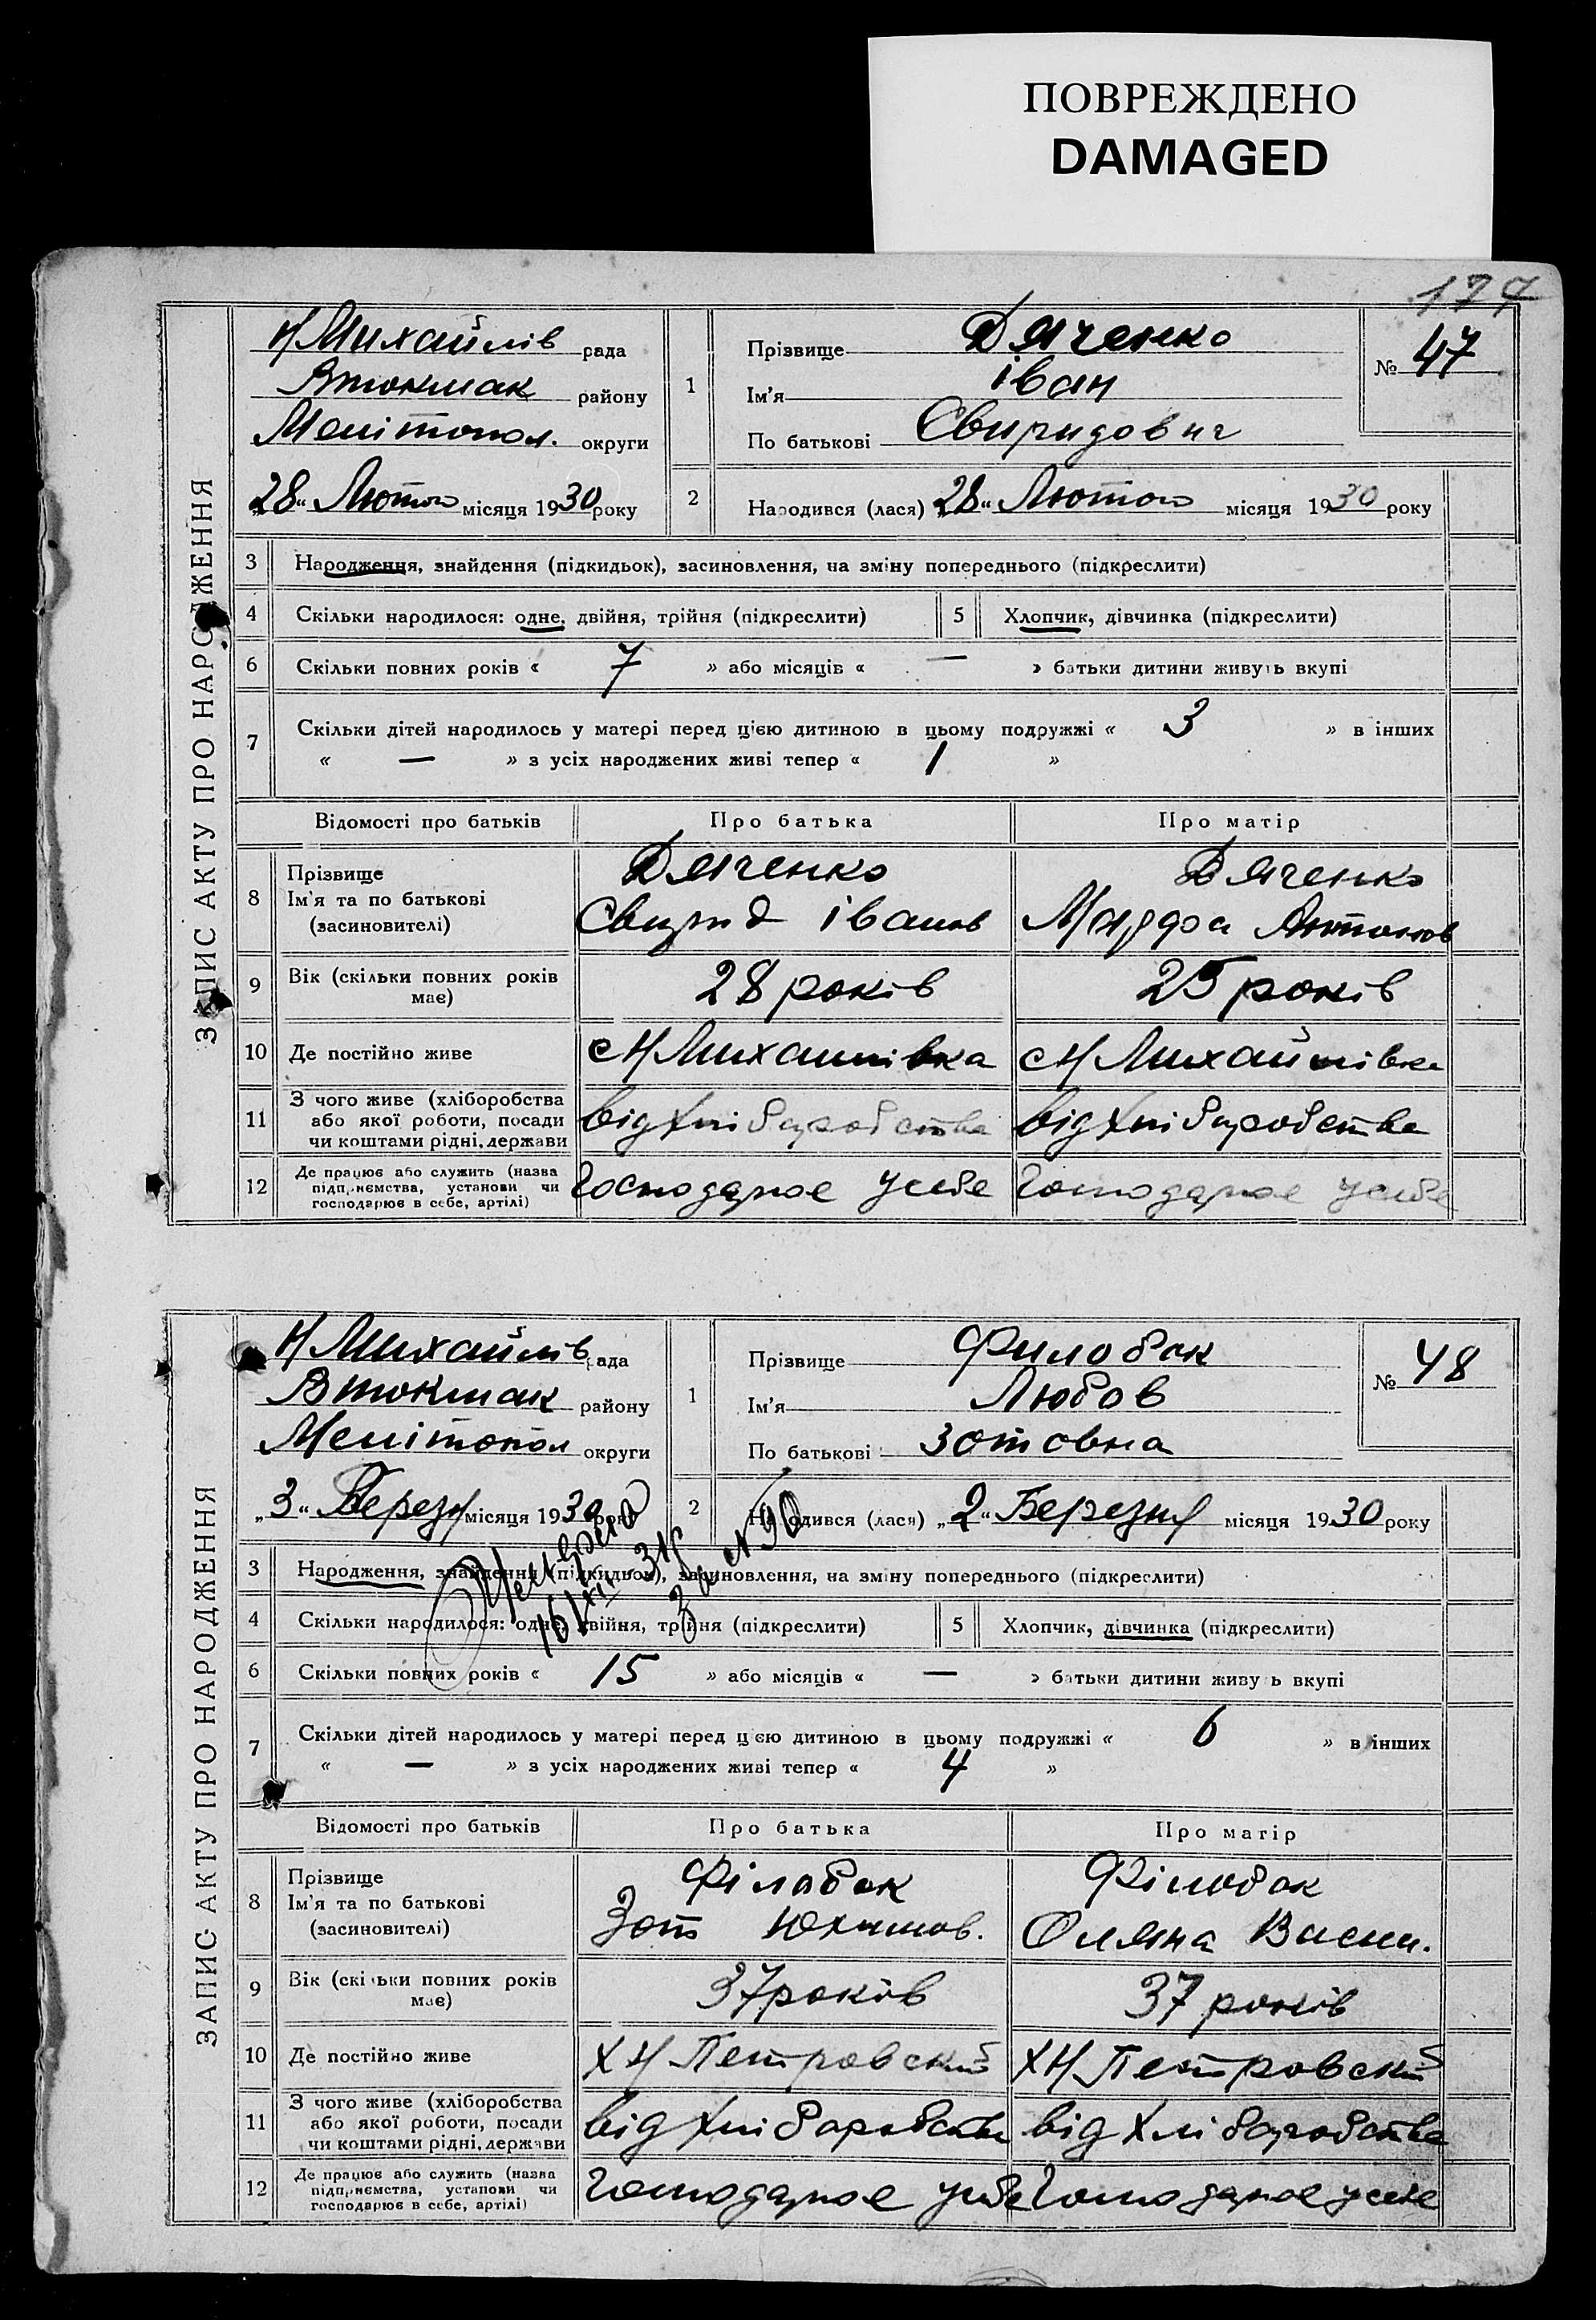 ПОВРЕЖДЕНО
DAMAGED
177
ЗАПИС АКТУ ПРО НАРОДЖЕННЯ
Н Михайлів рада
Втокмак району
Мелітопол. округи
„28“ Лютого місяця 1930 року
1
Прізвище Дяченко
Ім'я Іван
По батькові Свиридович
№ 47
2
Народився (лася) „28“ Лютого місяця 1930 року
3 Народження, знайдення (підкидьок), засиновлення, на зміну попереднього (підкреслити)
4 Скільки народилося: одне, двійня, трійня (підкреслити) 5 Хлопчик, дівчинка (підкреслити)
6 Скільки повних років « 7 » або місяців « — » батьки дитини живуть вкупі
7 Скільки дітей народилось у матері перед цією дитиною в цьому подружжі « 3 » в інших
« — » з усіх народжених живі тепер « 1 »
Відомості про батьків Про батька Про матір
8 Прізвище Дяченко Дяченко
Ім'я та по батькові Свирид Іванов Марфа Антонов
(засиновителі)
9 Вік (скільки повних років 28 років 25 років
має)
10 Де постійно живе с Н Михайлівка с Н Михайлівка
11 З чого живе (хліборобства від хліборобства від хліборобства
або якої роботи, посади
чи коштами рідні, держави
12 Де працює або служить (назва Господарює усебе Господарює усебе
підприємства, установи чи
господарює в себе, артілі)
ЗАПИС АКТУ ПРО НАРОДЖЕННЯ
Н Михайлів рада
Втокмак району
Мелітопол округи
„3“ Березня місяця 1930 року
1
Прізвище Филобок
Ім'я Любов
По батькові Зотовна
№ 48
2
Народився (лася) „2“ Березня місяця 1930 року
16/XII-31
За N 90
3 Народження, знайдення (підкидьок), засиновлення, на зміну попереднього (підкреслити)
4 Скільки народилося: одне, двійня, трійня (підкреслити) 5 Хлопчик, дівчинка (підкреслити)
6 Скільки повних років « 15 » або місяців « — » батьки дитини живуть вкупі
7 Скільки дітей народилось у матері перед цією дитиною в цьому подружжі « 6 » в інших
« — » з усіх народжених живі тепер « 4 »
Відомості про батьків Про батька Про матір
8 Прізвище Філобок Філобок
Ім'я та по батькові Зот Юхимов. Оляна Васил.
(засиновителі)
9 Вік (скільки повних років 37 років 37 років
має)
10 Де постійно живе х Н Петровский х Н Петровский
11 З чого живе (хліборобства від хліборобства від хліборобства
або якої роботи, посади
чи коштами рідні, держави
12 Де працює або служить (назва Господарює усебе Господарює усебе
підприємства, установи чи
господарює в себе, артілі)